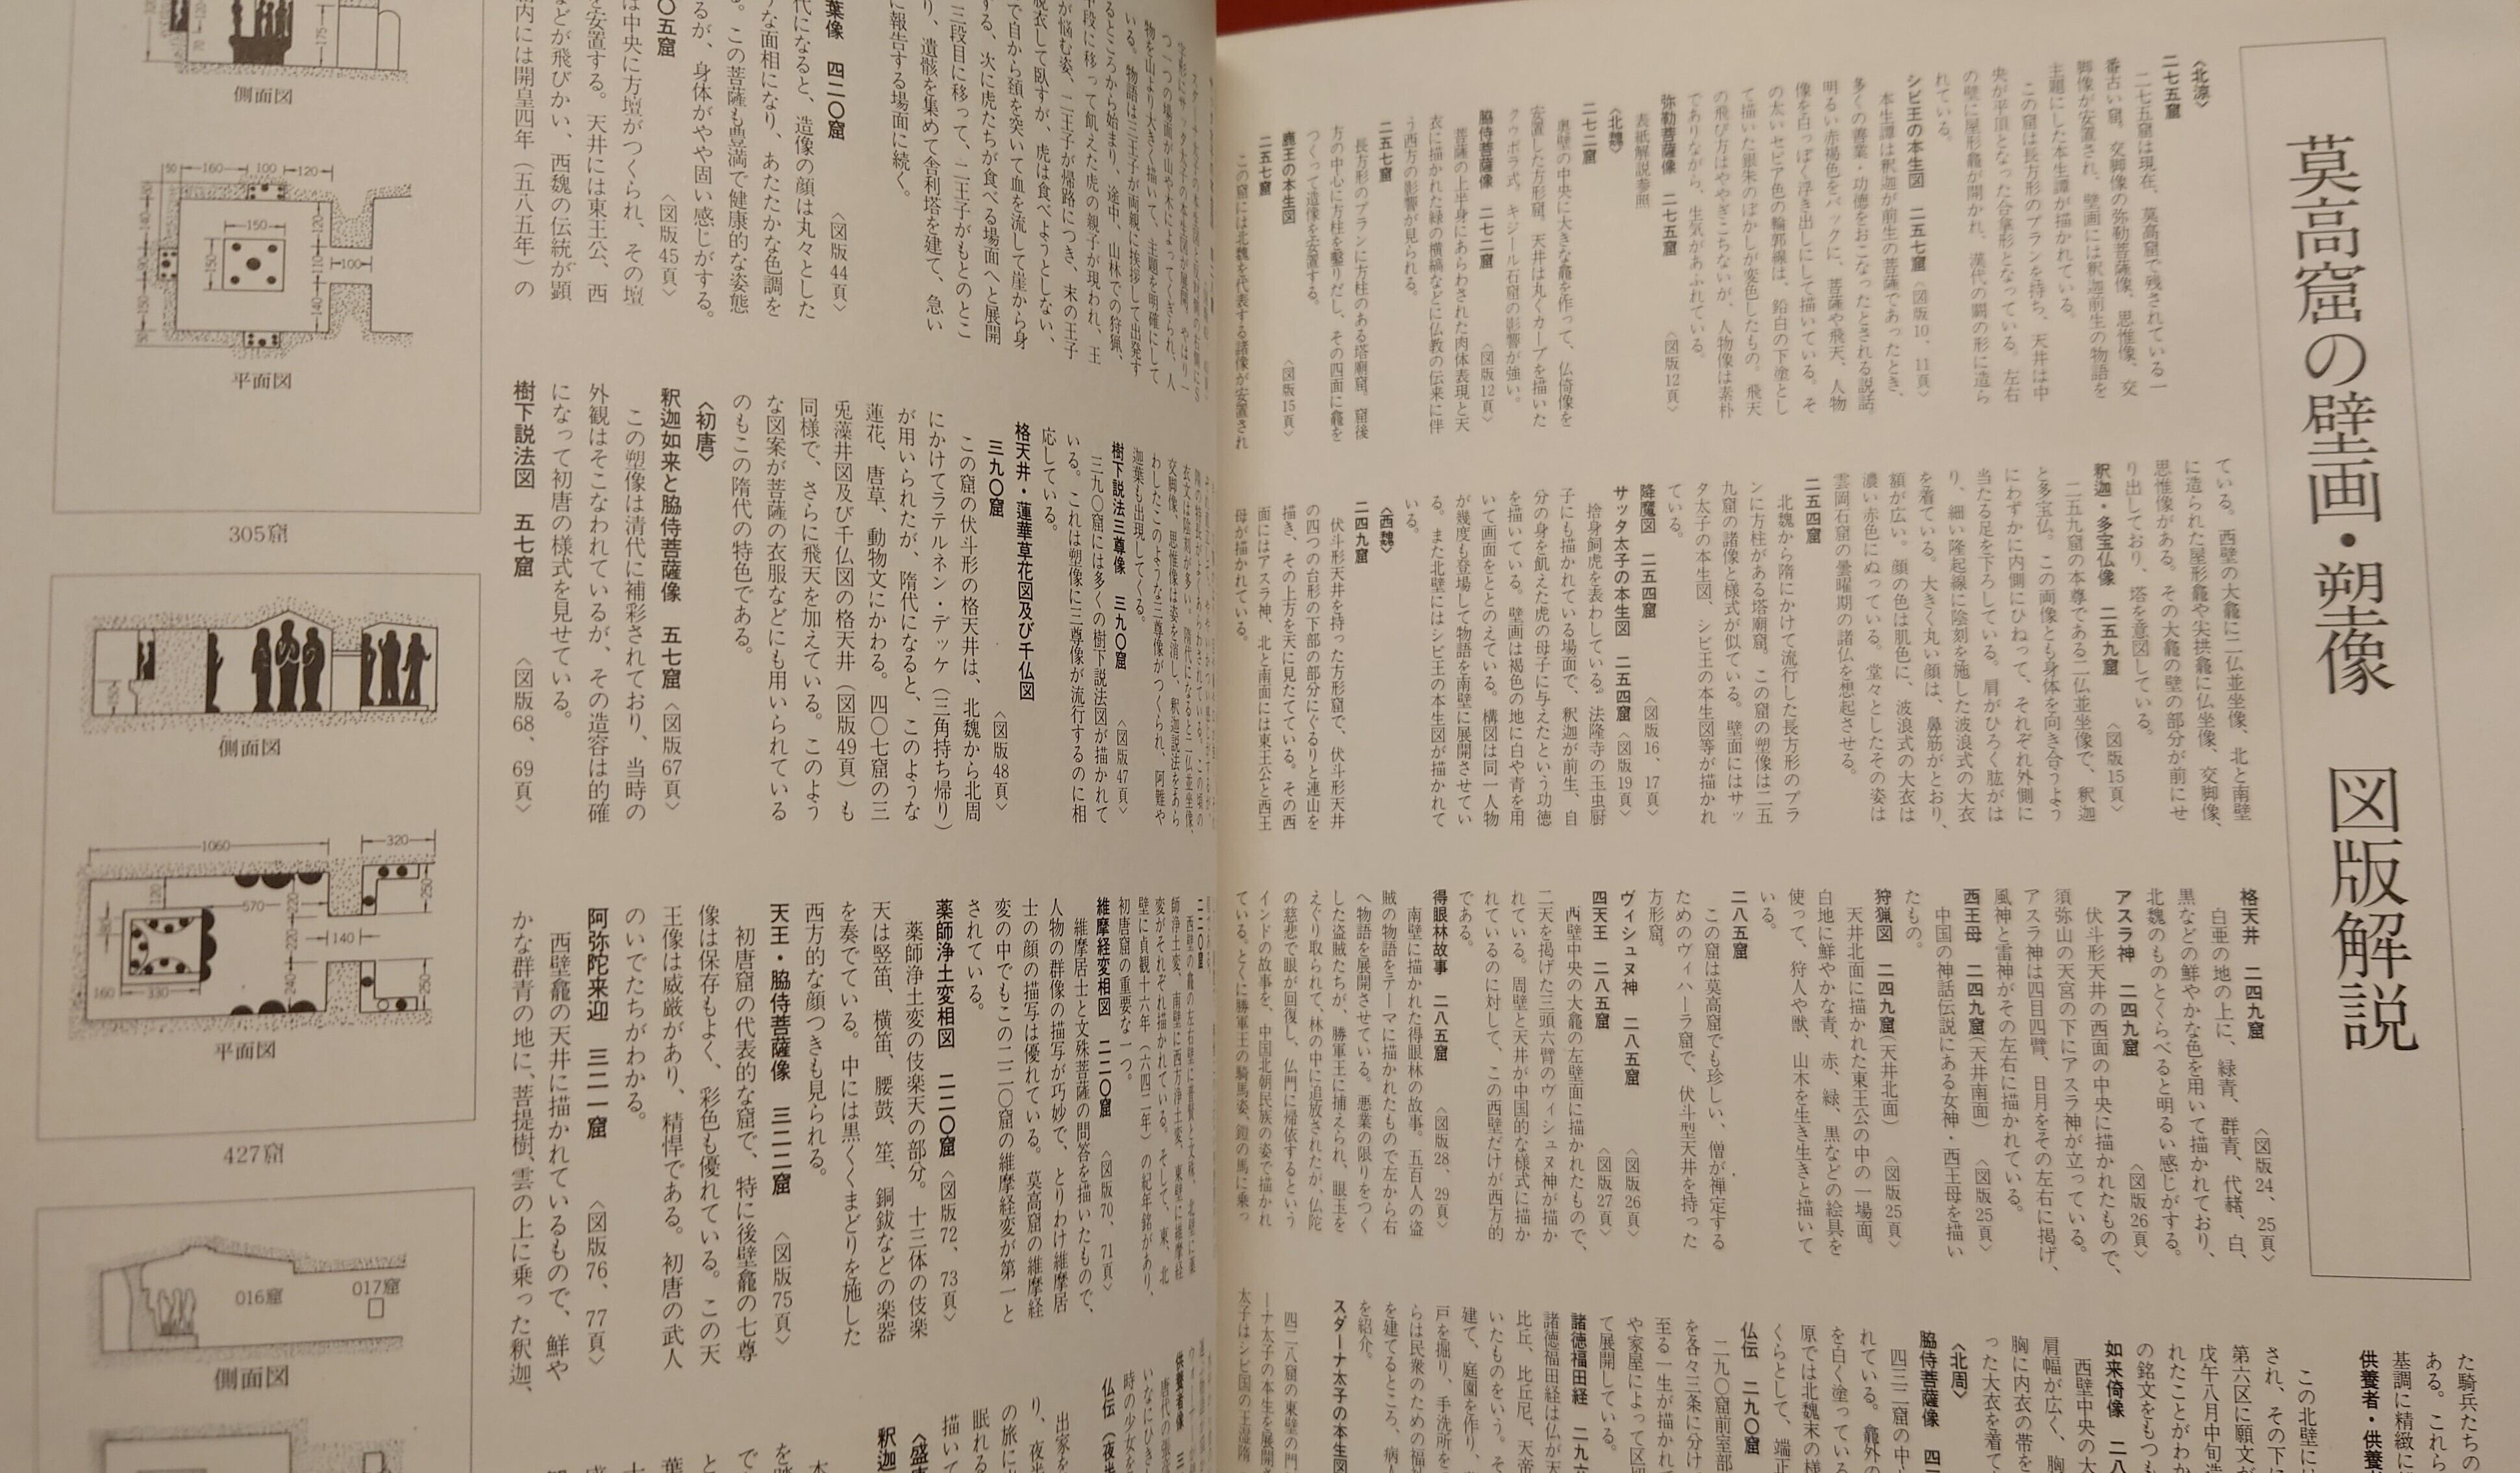 莫高窟の壁画・塑像 図版解説
〈北涼〉
二七五窟
二七五窟は現在、莫高窟で残されている一
番古い窟。交脚像の弥勒菩薩像、思惟像、交
脚像が安置され、壁画には釈迦前生の物語を
主題にした本生譚が描かれている。
この窟は長方形のプランを持ち、天井は中
央が平頂となった合掌形となっている。左右
の壁に屋形龕が開かれ、漢代の闕の形に造ら
れている。
シビ王の本生図 二七五窟〈図版10、11頁〉
本生譚は釈迦が前生の菩薩であったとき、
多くの善業・功徳をおこなったとされる説話。
明るい赤褐色をバックに、菩薩や飛天、人物
像を白っぽく浮き出しにして描いている。そ
の太いセピア色の輪郭線は、鉛白の下塗とし
て描いた銀朱のぼかしが変色したもの。飛天
の飛び方はややぎこちないが、人物像は素朴
でありながら、生気があふれている。
弥勒菩薩像 二七五窟 〈図版12頁〉
表紙解説参照
〈北魏〉
二七二窟
奥壁の中央に大きな龕を作って、仏倚像を
安置した方形窟。天井は丸くカーブを描いた
クゥポラ式。キジール石窟の影響が強い。
脇侍菩薩像 二七二窟 〈図版12頁〉
菩薩の上半身にあらわされた肉体表現と天
衣に描かれた緑の横縞などに仏教の伝来に伴
う西方の影響が見られる。
二五七窟
長方形のプランに方柱のある塔廟窟。窟後
方の中心に方柱を鑿りだし、その四面に龕を
つくって造像を安置する。
鹿王の本生図 〈図版15頁〉
二五七窟
この窟には北魏を代表する諸像が安置され
ている。西壁の大龕に二仏並坐像、北と南壁
に造られた屋形龕や尖拱龕に仏坐像、交脚像、
思惟像がある。その大龕の壁の部分が前にせ
り出しており、塔を意図している。
釈迦・多宝仏像 二五九窟 〈図版15頁〉
二五九窟の本尊である二仏並坐像で、釈迦
と多宝仏。この両像とも身体を向き合うよう
にわずかに内側にひねって、それぞれ外側に
当たる足を下ろしている。肩がひろく肱がは
り、細い隆起線に陰刻を施した波浪式の大衣
を着ている。大きく丸い顔は、鼻筋がとおり、
額が広い。顔の色は肌色に、波浪式の大衣は
濃い赤色にぬっている。堂々としたその姿は
雲岡石窟の曇曜期の諸仏を想起させる。
二五四窟
北魏から隋にかけて流行した長方形のプラ
ンに方柱がある塔廟窟。この窟の塑像は二五
九窟の諸像と様式が似ている。壁面にはサッ
タ太子の本生図、シビ王の本生図等が描かれ
ている。
降魔図 二五四窟 〈図版16、17頁〉
サッタ太子の本生図 二五四窟〈図版19頁〉
捨身飼虎を表わしている。法隆寺の玉虫厨
子にも描かれている場面で、釈迦が前生、自
分の身を飢えた虎の母子に与えたという功徳
を描いている。壁画は褐色の地に白や青を用
いて画面をととのえている。構図は同一人物
が幾度も登場して物語を南壁に展開させてい
る。また北壁にはシビ王の本生図が描かれて
いる。
〈西魏〉
二四九窟
伏斗形天井を持った方形窟で、伏斗形天井
の四つの台形の下部の部分にぐるりと連山を
描き、その上方を天に見たてている。その西
面にはアスラ神、北と南面には東王公と西王
母が描かれている。
格天井 二四九窟 〈図版24、25頁〉
白亜の地の上に、緑青、群青、代赭、白、
黒などの鮮やかな色を用いて描かれており、
北魏のものとくらべると明るい感じがする。
アスラ神 二四九窟 〈図版26頁〉
伏斗形天井の西面の中央に描かれたもので、
須弥山の天宮の下にアスラ神が立っている。
アスラ神は四目四臂、日月をその左右に掲げ、
風神と雷神がその左右に描かれている。
西王母 二四九窟(天井南面) 〈図版25頁〉
中国の神話伝説にある女神・西王母を描い
たもの。
狩猟図 二四九窟(天井北面) 〈図版25頁〉
天井北面に描かれた東王公の中の一場面。
白地に鮮やかな青、赤、緑、黒などの絵具を
使って、狩人や獣、山木を生き生きと描いて
いる。
二八五窟
この窟は莫高窟でも珍しい、僧が禅定する
ためのヴィハーラ窟で、伏斗型天井を持った
方形窟。
ヴィシュヌ神 二八五窟 〈図版26頁〉
四天王 二八五窟 〈図版27頁〉
西壁中央の大龕の左壁面に描かれたもので、
二天を掲げた三頭六臂のヴィシュヌ神が描か
れている。周壁と天井が中国的な様式に描か
れているのに対して、この西壁だけが西方的
である。
得眼林故事 二八五窟 〈図版28、29頁〉
南壁に描かれた得眼林の故事。五百人の盗
賊の物語をテーマに描かれたもので左から右
へ物語を展開させている。悪業の限りをつく
した盗賊たちが、勝軍王に捕えられ、眼玉を
えぐり取られて、林の中に追放されたが、仏陀
の慈悲で眼が回復し、仏門に帰依するという
インドの故事を、中国北朝民族の姿で描かれ
ている。とくに勝軍王の騎馬姿、鎧の馬に乗っ
た騎兵たちの
ある。これら
基調に精緻に
供養者・供養
この北壁に
され、その下に
第六区に願文が
戊午八月中旬造
れたことがわか
の銘文をもつも
如来倚像 二八
西壁中央の大
肩幅が広く、胸
胸に内衣の帯を
った大衣を着て
〈北周〉
脇侍菩薩像 四
四三二窟の中
れている。龕外の
を白く塗っている
原では北魏末の様
くらとして、端正
仏伝 二九〇窟
二九〇窟前室部
を各々三条に分け
至る一生が描かれ
や家屋によって区切
て展開している。
諸徳福田経 二九六
諸徳福田経は仏が天
比丘、比丘尼、天帝
いたものをいう。そ
建て、庭園を作り、
戸を掘り、手洗所を
らは民衆のための福祉
を建てるところ、病人
を紹介。
スダーナ太子の本生図
四二八窟の東壁の門
ーナ太子の本生を展開さ
太子はシビ国の王湿隋
いる。物語は三王子が両親に挨拶して出発す
るところから始まり、途中、山林での狩猟、
中段に移って飢えた虎の親子が現われ、王
が悩む姿、二王子が帰路につき、末の王子
脱衣して臥すが、虎は食べようとしない、
で自から頚を突いて血を流して崖から身
する、次に虎たちが食べる場面へと展開
三段目に移って、二王子がもとのとこ
り、遺骸を集めて舎利塔を建て、急い
に報告する場面に続く。
葉像 四二〇窟 〈図版44頁〉
代になると、造像の顔は丸々とした
うな面相になり、あたたかな色調を
。この菩薩も豊満で健康的な姿態
るが、身体がやや固い感じがする。
〇五窟 〈図版45頁〉
は中央に方壇がつくられ、その壇
を安置する。天井には東王公、西
などが飛びかい、西魏の伝統が顕
窟内には開皇四年（五八五年）の
わしたこのような三尊像がつくられ、阿難や
迦葉も出現してくる。
樹下説法三尊像 三九〇窟 〈図版47頁〉
三九〇窟には多くの樹下説法図が描かれて
いる。これは塑像に三尊像が流行するのに相
応している。
格天井・蓮華草花図及び千仏図
三九〇窟 〈図版48頁〉
この窟の伏斗形の格天井は、北魏から北周
にかけてラテルネン・デッケ（三角持ち帰り）
が用いられたが、隋代になると、このような
蓮花、唐草、動物文にかわる。四〇七窟の三
兎藻井図及び千仏図の格天井（図版49頁）も
同様で、さらに飛天を加えている。このよう
な図案が菩薩の衣服などにも用いられている
のもこの隋代の特色である。
〈初唐〉
釈迦如来と脇侍菩薩像 五七窟〈図版67頁〉
この塑像は清代に補彩されており、当時の
外観はそこなわれているが、その造容は的確
になって初唐の様式を見せている。
樹下説法図 五七窟 〈図版68、69頁〉
二二〇窟
初唐窟の重要な一つ。
維摩経変相図 二二〇窟 〈図版70、71頁〉
維摩居士と文殊菩薩の問答を描いたもので、
人物の群像の描写が巧妙で、とりわけ維摩居
士の顔の描写は優れている。莫高窟の維摩経
変の中でもこの二二〇窟の維摩経変が第一と
されている。
薬師浄土変相図 二二〇窟〈図版72、73頁〉
薬師浄土変の伎楽天の部分。十三体の伎楽
天は竪笛、横笛、腰鼓、笙、銅鈸などの楽器
を奏でている。中には黒くくまどりを施した
西方的な顔つきも見られる。
天王・脇侍菩薩像 三二二窟 〈図版75頁〉
初唐窟の代表的な窟で、特に後壁龕の七尊
像は保存もよく、彩色も優れている。この天
王像は威厳があり、精悍である。初唐の武人
のいでたちがわかる。
阿弥陀来迎 三二一窟 〈図版76、77頁〉
西壁龕の天井に描かれているもので、鮮や
かな群青の地に、菩提樹、雲の上に乗った釈迦、
供養者像 三
唐代の張
いなにひき
時の少女を
仏伝（夜半
出家を
り、夜半
の旅に
眠れる
描いて
〈盛唐
釈迦
側面図
175
50 160 100 120
150
150
100
平面図
305窟
側面図
1060
320
120
570
220
250
220
140
160
330
240
250
平面図
427窟
016窟
017窟
側面図